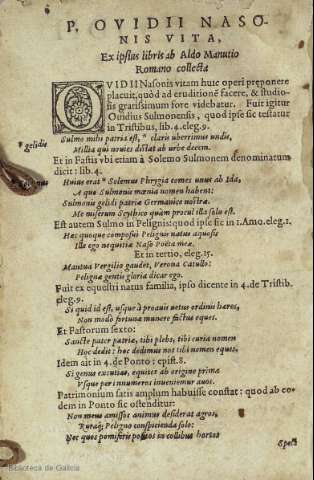 P. OVIDII NASO-
NIS VITA,
Ex ipsius libris ab Aldo Manutio
Romano collecta
OVIDII Nasonis vitam huic operi preponere
placuit, quòd ad eruditionẽ facere, & studio-
sis gratissimum fore videbatur. Fuit igitur
Ouidius Sulmonensis, quod ipse sic testatur
in Tristibus, lib.4.eleg.9.
Sulmo mihi patria est, * claris vberrimus vndis,
* gelidis
Millia qui nouies distat ab vrbe decem.
Et in Fastis vbi etiam à Solemo Sulmonem denominatum
dicit: lib.4.
Huius erat * Solemus Phrygia comes vnus ab Ida,
A quo Sulmonis mœnia nomen habent:
Sulmonis gelidi patriæ Germanice nostræ.
Me miserum Scythico quàm procul illa solo est.
Est autem Sulmo in Pelignis: quod ipse sic in 1.Amo.eleg.1.
Hæc quoque composui Pelignis natus aquosis
Ille ego nequitiæ Naso Poëta meæ.
Et in tertio, eleg.15.
Mantua Vergilio gaudet, Verona Catullo:
Pelignæ gentis gloria dicar ego.
Fuit ex equestri natus familia, ipso dicente in 4.de Tristib.
eleg.9.
Si quid id est, vsque à proauis vetus ordinis hæres,
Non modo fortunæ munere factus eques.
Et Fastorum sexto:
Sancte pater patriæ, tibi plebs, tibi curia nomen
Hoc dedit: hoc dedimus nos tibi nomen eques.
Idem ait in 4.de Ponto: epist.8.
Si genus excutias, equites ab origine prima
Vsque per innumeros inuenimur auos.
Patrimonium satis amplum habuisse constat: quod ab eo-
dem in Ponto sic ostenditur:
Non meus amissos animus desiderat agros,
Ruraq; Peligno conspicienda solo:
Nec quos pomiferis positos in collibus hortos
Spect
Biblioteca de Galicia